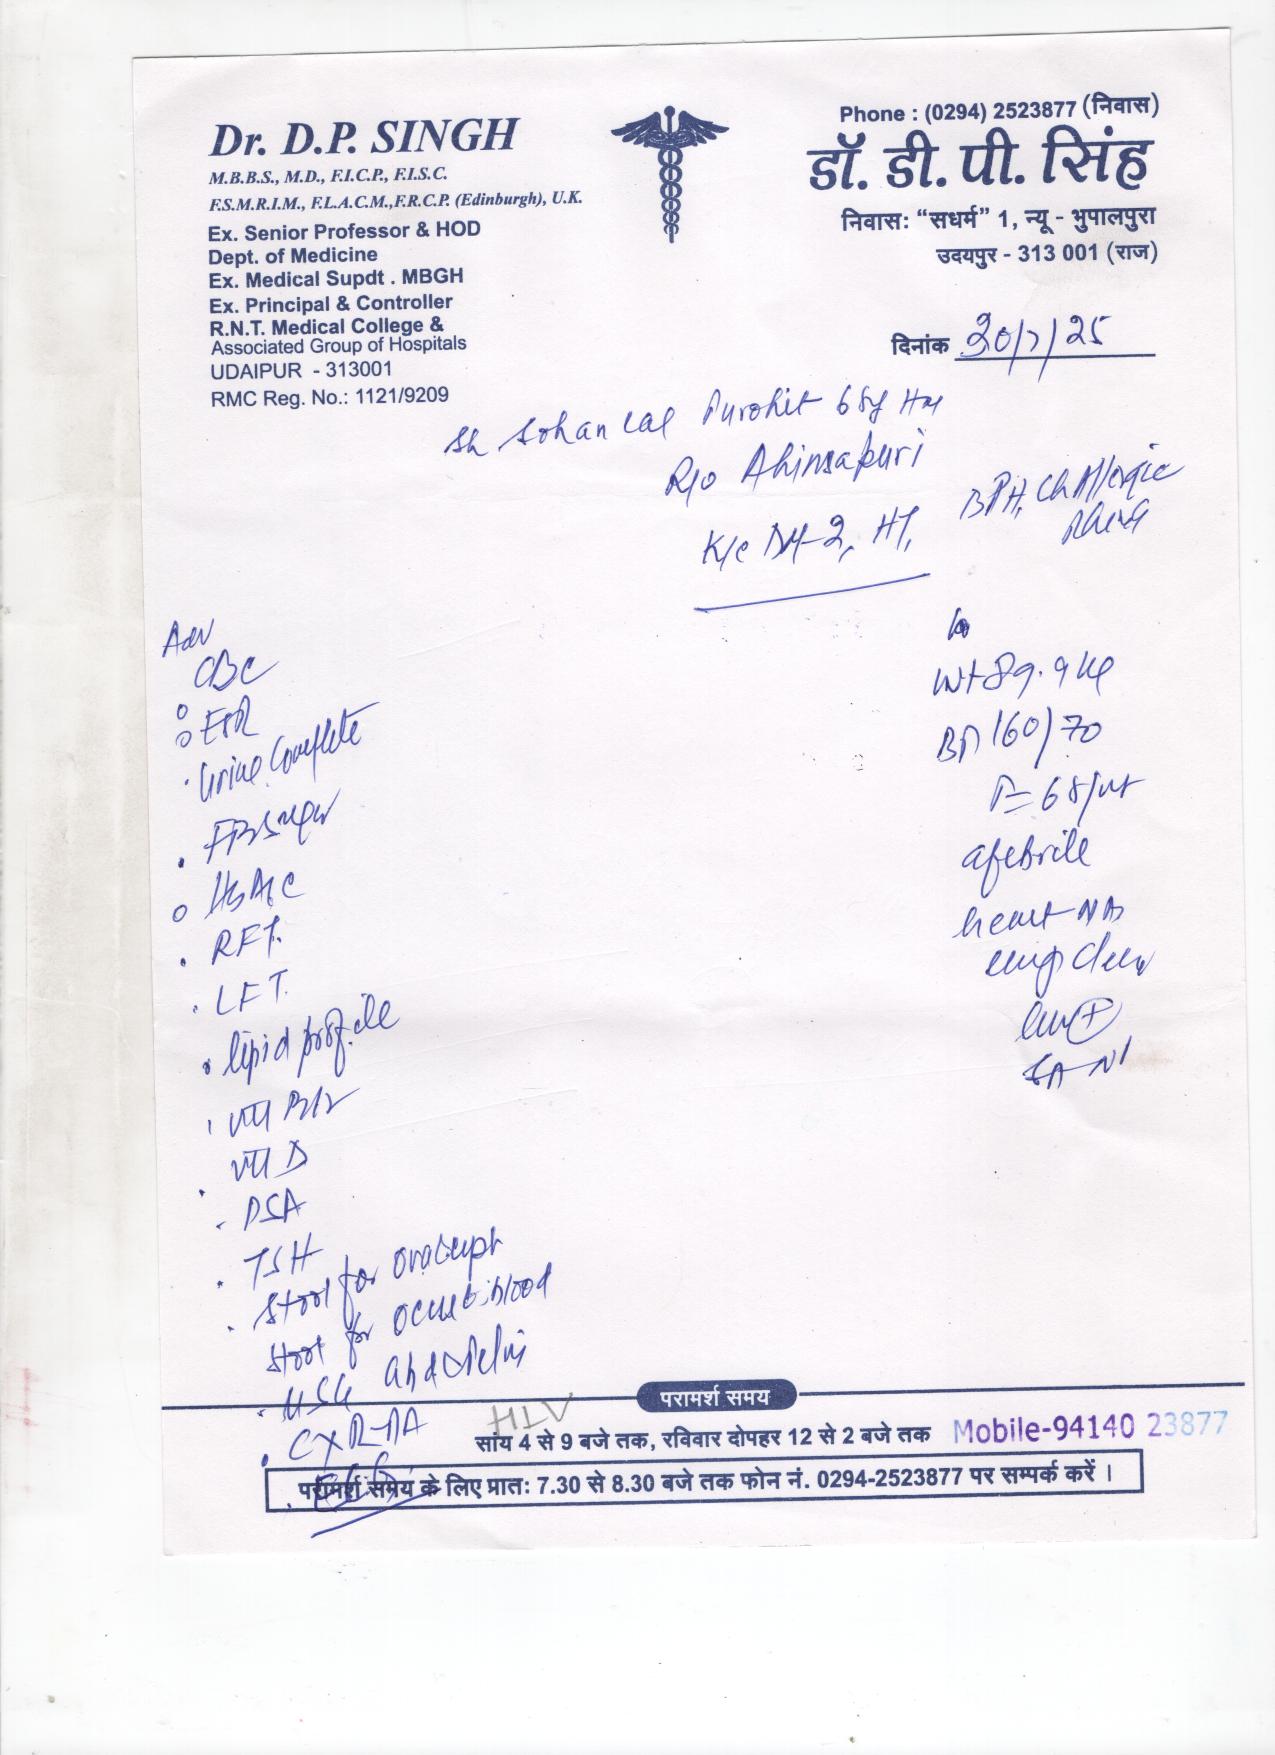 Dr. D.P. SINGH
M.B.B.S., M.D., F.I.C.P., F.I.S.C.
F.S.M.R.I.M., F.L.A.C.M.,F.R.C.P. (Edinburgh), U.K.
Ex. Senior Professor & HOD
Dept. of Medicine
Ex. Medical Supdt . MBGH
Ex. Principal & Controller
R.N.T. Medical College &
Associated Group of Hospitals
UDAIPUR - 313001
RMC Reg. No.: 1121/9209
Phone : (0294) 2523877 (निवास)
डॉ. डी. पी. सिंह
निवास: “सधर्म” 1, न्यू - भुपालपुरा
उदयपुर - 313 001 (राज)
दिनांक /7/25
Sh Sohan Lal Purohit 68y
R/o Ahinsapuri
K/c DM-2, HT, BPH, Ch Allergic
Adv
CBC
ESR
Urine Complete
FBSugar
HbA1C
RFT.
LFT.
lipid profile
Vit B12
Vit D
PSA
TSH
Stool for Ova
Stool for occult blood
USG Abd & Pelvis
CXR-PA
ECG
HIV
Wt 89.9 kg
BP 160/70
P= 68/mt
afebrile
heart-
lung clear
परामर्श समय
सांय 4 से 9 बजे तक, रविवार दोपहर 12 से 2 बजे तक
Mobile-94140 23877
परामर्श समय के लिए प्रातः 7.30 से 8.30 बजे तक फोन नं. 0294-2523877 पर सम्पर्क करें ।